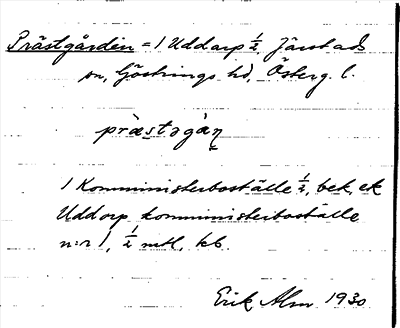 Prästgården = 1 Uddarp ½, Järstads
sn, Göstrings hd, Österg. l.
præstəgàṇ
1 Komministerboställe ½, bek. ek
Uddorp komministerboställe
n:r 1, ½ mtl, kb.
Erik Alm 1930